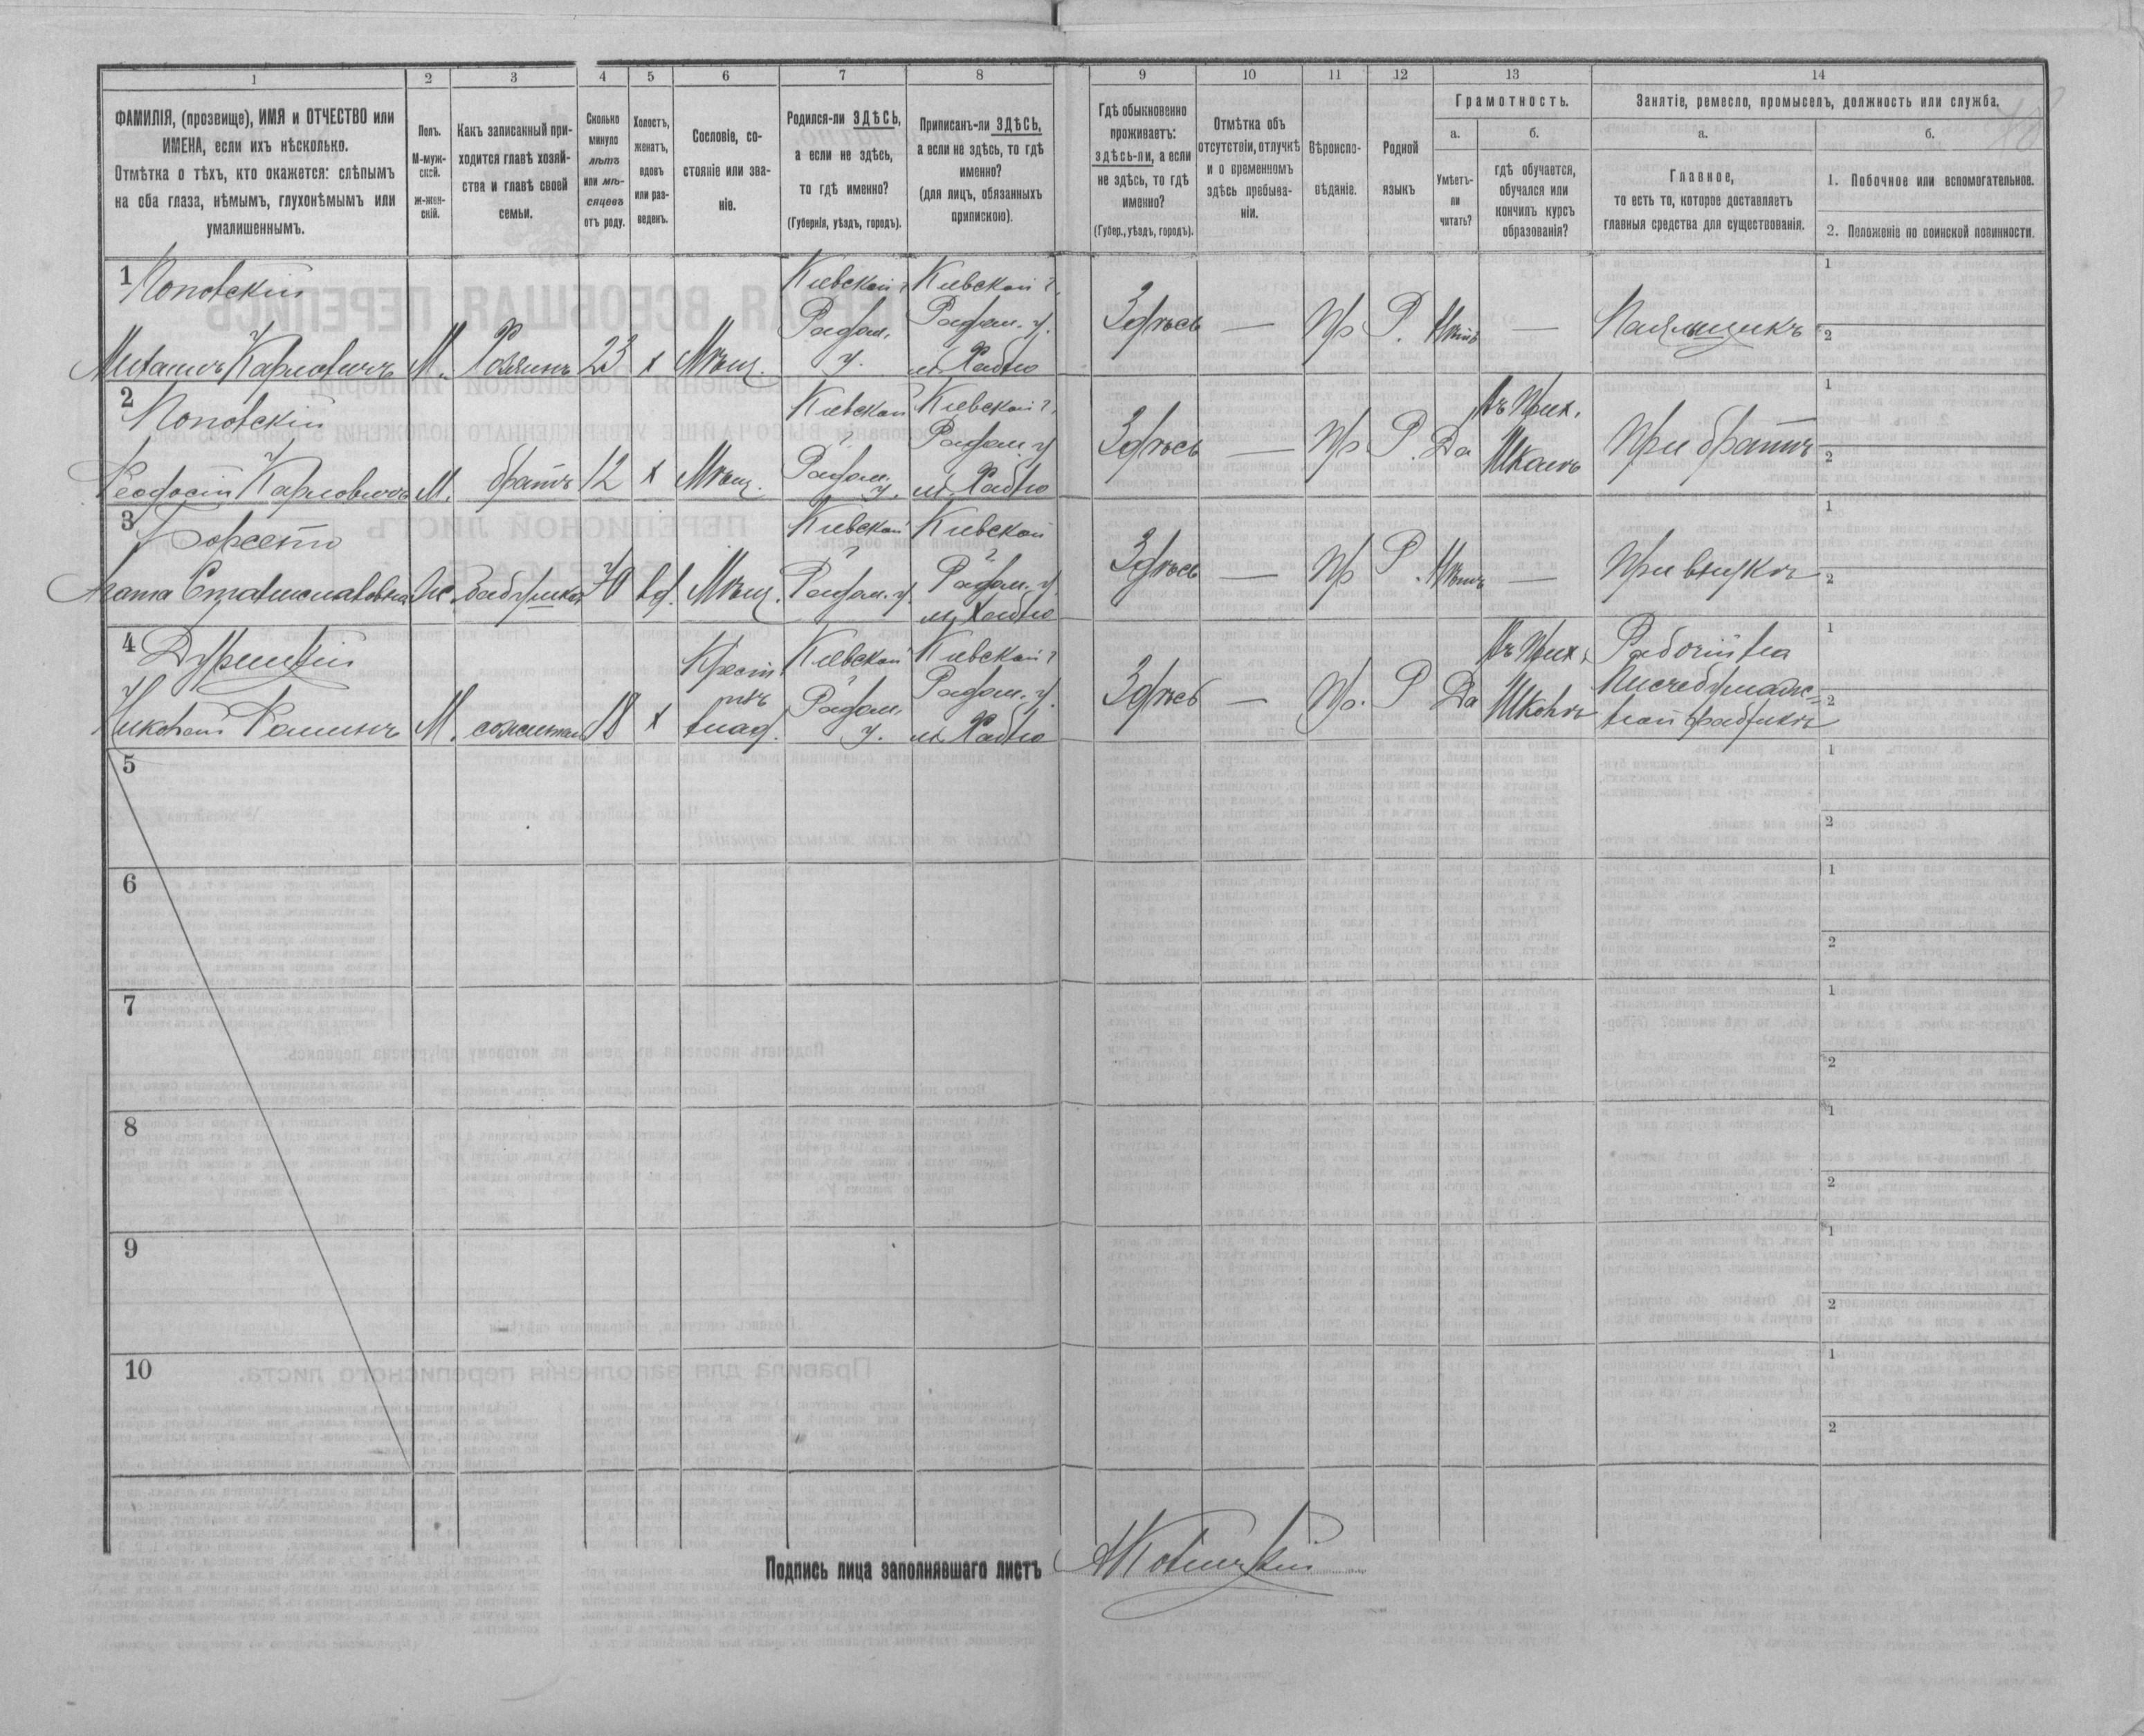 1 2 3 4 5 6 7 8 9 10 11 12 13 14
ФАМИЛІЯ, (прозвище), ИМЯ и ОТЧЕСТВО или
ИМЕНА, если ихъ нѣсколько.
Отмѣтка о тѣхъ, кто окажется: слѣпымъ
на оба глаза, нѣмымъ, глухонѣмымъ или
умалишеннымъ.
Полъ.
М-муж-
ской.
ж-жен-
скій.
Какъ записанный при-
ходится главѣ хозяй-
ства и главѣ своей
семьи.
Сколько
минуло
лѣтъ
или мѣ-
сяцевъ
отъ роду.
Холостъ,
женатъ,
вдовъ
или раз-
веденъ.
Сословіе, со-
стояніе или зва-
ніе.
Родился-ли ЗДѢСЬ,
а если не здѣсь,
то гдѣ именно?
(Губернія, уѣздъ, городъ).
Приписанъ-ли ЗДѢСЬ,
а если не здѣсь, то гдѣ
именно?
(для лицъ, обязанныхъ
припискою).
Гдѣ обыкновенно
проживаетъ:
здѣсь-ли, а если
не здѣсь, то гдѣ
именно?
(Губер., уѣздъ, городъ).
Отмѣтка объ
отсутствіи, отлучкѣ
и о временномъ
здѣсь пребыва-
ніи.
Вѣроиспо-
вѣданіе.
Родной
языкъ
Грамотность.
а.
Умѣетъ-
ли
читать?
б.
гдѣ обучается,
обучался или
кончилъ курсъ
образованія?
Занятіе, ремесло, промыселъ, должность или служба.
а.
Главное,
то есть то, которое доставляетъ
главныя средства для существованія.
б.
1. Побочное или вспомогательное.
2. Положеніе по воинской повинности.
1 Поповскій
Михаилъ Карловичъ М. Хозяинъ 23 х Мѣщ.
Кіевской г.
Радом.
у.
Кіевской г.
Радом. у.
м. Хабно
Здѣсь — Пр Р. Нѣтъ —
1
2
2 Поповскій
Феодосій Карловичъ М. братъ 12 х Мѣщ.
Кіевской
г.
Радом.
у.
Кіевской г.
Радом. у
м. Хабно
Здѣсь — Пр Р. Да
Въ Прих.
Школѣ
При братѣ
1
2
3
Агата Станиславовна Ж. Бабушка 70 вд. Мѣщ.
Кіевской
г
Радом. у.
Кіевской
г
Радом. у.
м. Хабно
Здѣсь — Пр Р. Нѣтъ — При внукѣ
1
2
4
Николай М. 18 х
Крест
влад.
Кіевской
г
Радом.
у.
Кіевской г
Радом. у.
м. Хабно
Здѣсь — Пр. Р Да
Въ Прих.
Школѣ
Рабочій на
Писчебумаж-
ной фабрикѣ
1
2
5 1
2
6 1
2
7 1
2
8 1
2
9 1
2
10 1
2
Подпись лица заполнявшаго листъ